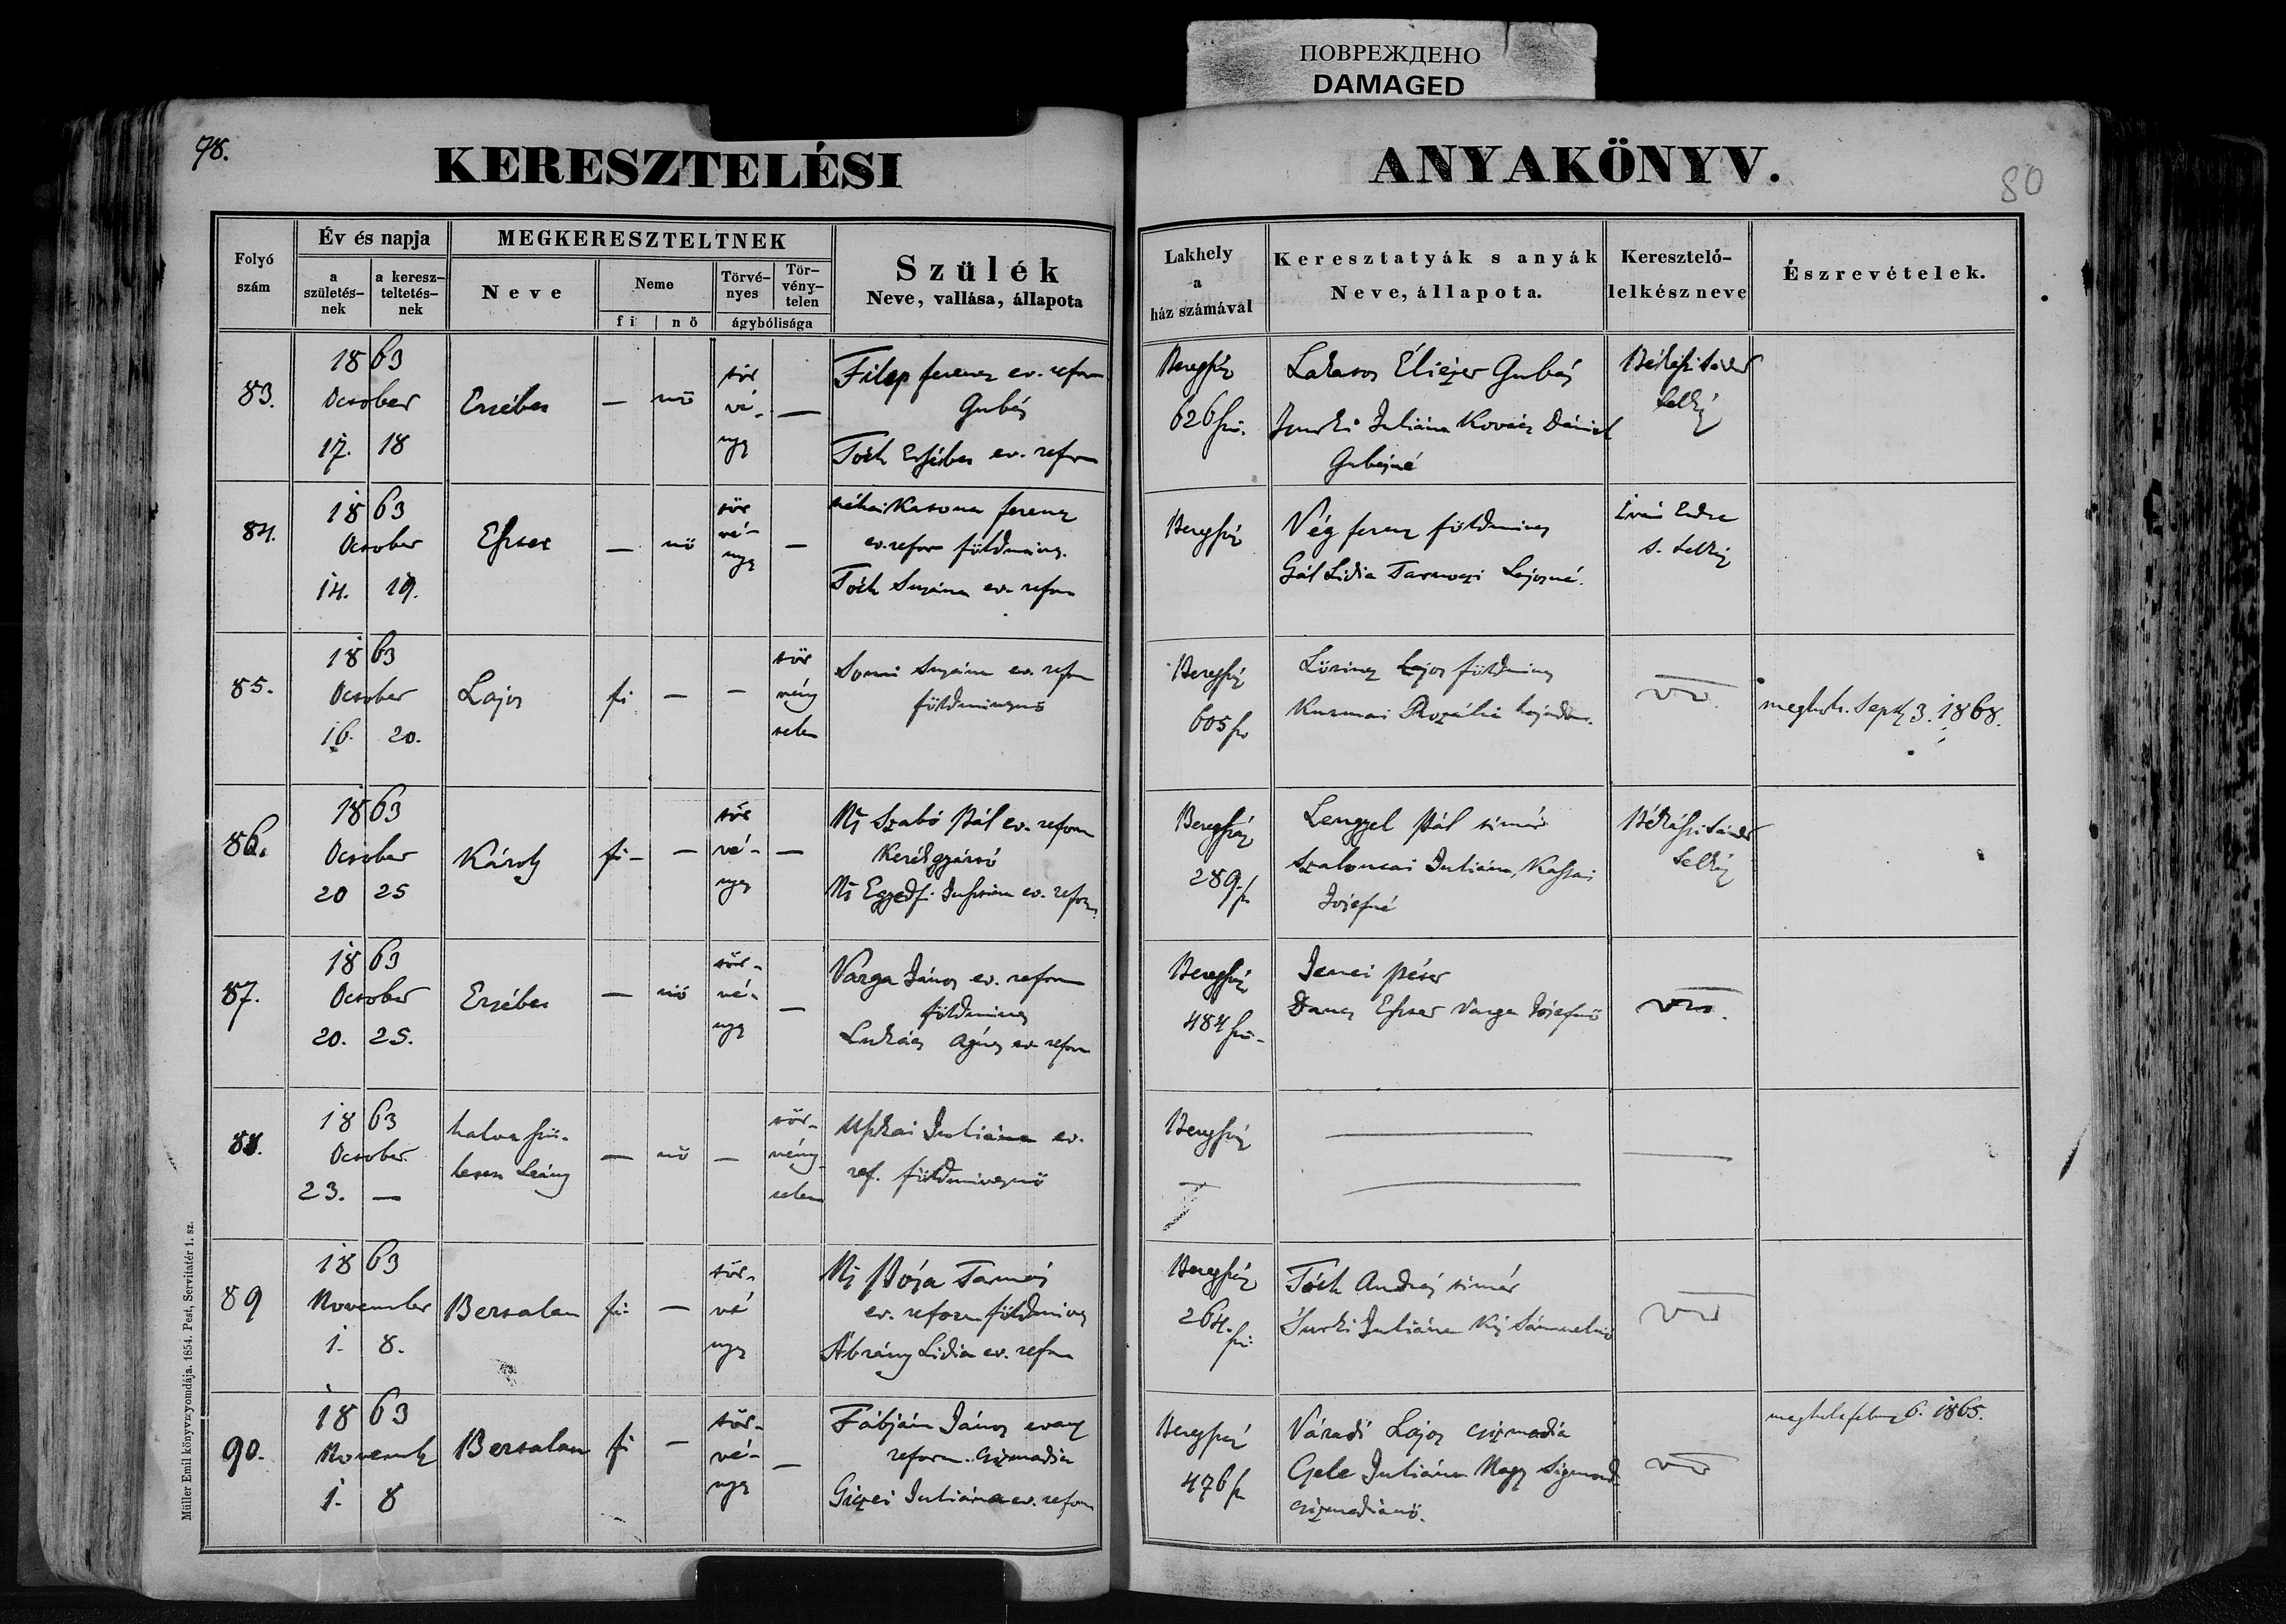 ПОВРЕЖДЕНО
DAMAGED
98.
KERESZTELÉSI
ANYAKÖNYV.
80
Folyó szám
Év és napja
a születés-nek
a keresz-teltetés-nek
MEGKERESZTELTNEK
Neve
Neme
fi | nö
Törvé-nyes
Tör-vény-telen
ágybólisága
Szülék
Neve, vallása, állapota
Lakhely
a
ház számával
Keresztatyák s anyák
Neve, állapota.
Keresztelő-
lelkész neve
Észrevételek.
83.
1863
October
17. 18
Erzsébet
— nö
tör
vé-
nyes
—
Filep ferencz ev. reform
Gubás
Tóth Erzsébet ev. reform
Beregszáz
626 sz.
Lakatos Eliézer Gubás
Juliána Kovács Dániel
Gubásné
Békássi Sándor
lelkész
84.
1863
October
14. 19.
Eszter
— nö
tör
vé-
nyes
—
néhai Katona ferencz
ev. refor földmives.
Tóth Suzána ev. refor
Beregszáz
Vég ferencz földmives
Gál Lidia Lajosné.
Iván Endre
s. lelkész
85.
1863
October
16. 20.
Lajos
fi — —
tör
vény
telen
Suzána ev. refor
földmivesnö
Beregszáz
605 sz
Lörincz Lajos földmives
Rozália hajadon.
megholt. Sept 3. 1868.
86.
1863
October
20 25
Károly
fi — —
tör
vé-
nyes
—
Ns Szabó Pál ev. reform
Kerékgyártó
Ns Egyedfi ev. reform
Beregszáz
289. sz
Lengyel Pál timár
Szaloncai Juliána, Kassai
Józsefné
Békássi Sándor
lelkész
87.
1863
October
20. 25.
Erzsébet
— nö
tör-
vé-
nyes
—
Varga János ev. reform
földmives
Lukács Ágnes ev. reform
Beregszáz
484 sz.
Jenei Péter
Dancs Eszter Varga Józsefné
88.
1863
October
23. —
halva szü-
letett Leány
— nö —
tör-
vény-
telen
Juliána ev.
ref. földmivesnö
Beregszáz
89
1863
November
1. 8.
Bertalan
fi —
tör-
vé
nyes
Ns Pója Tamás
ev. reform földmives
Ábrány Lidia ev. refor
Beregszáz
264. sz
Tóth András timár
Juliána Kis Sámuelné
90.
1863
Novemb
1. 8
Bertalan
fi —
tör-
vé-
nyes
—
Fábján János evang
reform. csizmadia
Gizei Juliána ev. reform
Beregszáz
476 sz
Váradi Lajos csizmadia
Gele Juliána Nagy Sigmond
csizmadiánö.
megholt febru 6. 1865.
Müller Emil könyvnyomdája. 1854. Pest, Servitatér 1. sz.